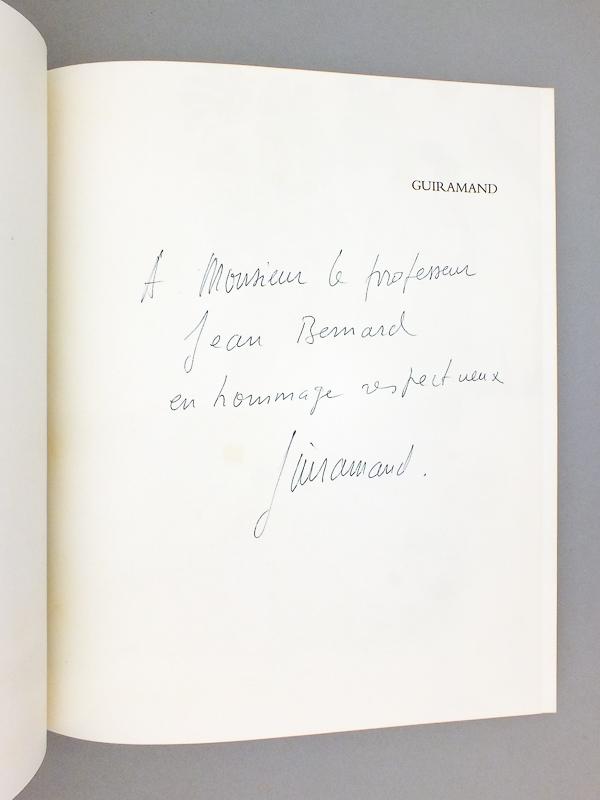 GUIRAMAND
A Monsieur le professeur
Jean Bernard
en hommage respectueux
Guiramand.